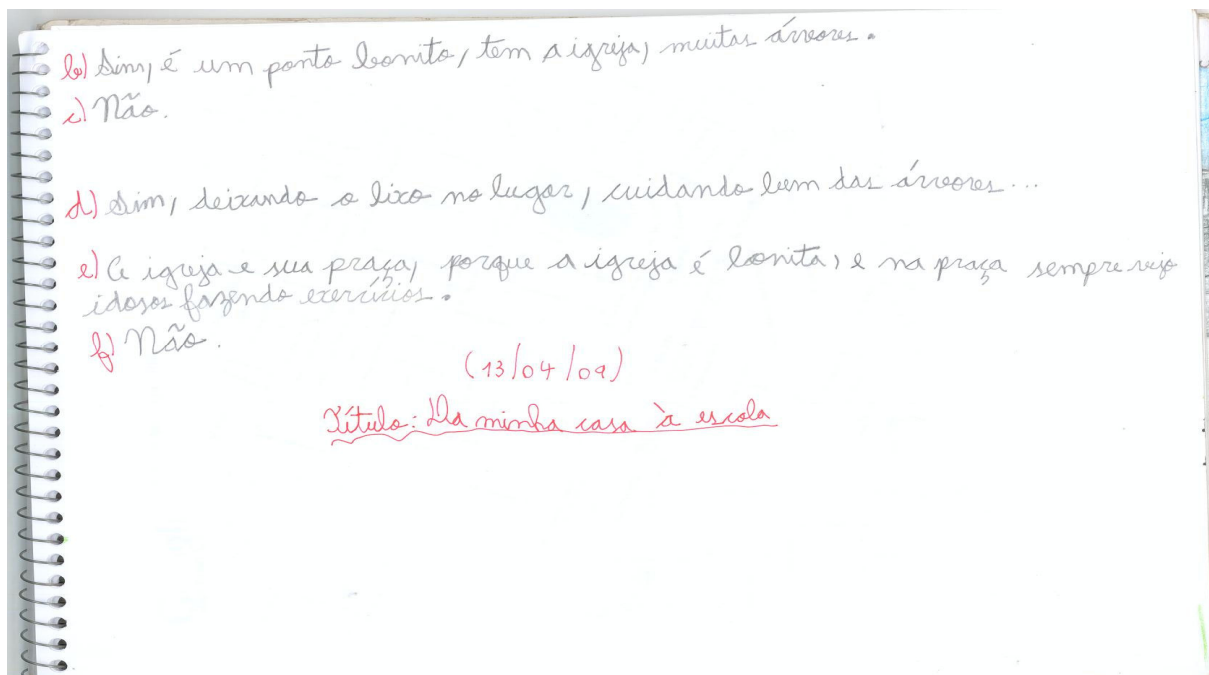 b) Sim, é um ponto bonito, tem a igreja, muitas árvores.
c) Não.
d) Sim, deixando o lixo no lugar, cuidando bem das árvores...
e) A igreja e sua praça, porque a igreja é bonita, e na praça sempre vejo
idosos fazendo exercícios.
f) Não.
(13/04/09)
Título: Da minha casa à escola